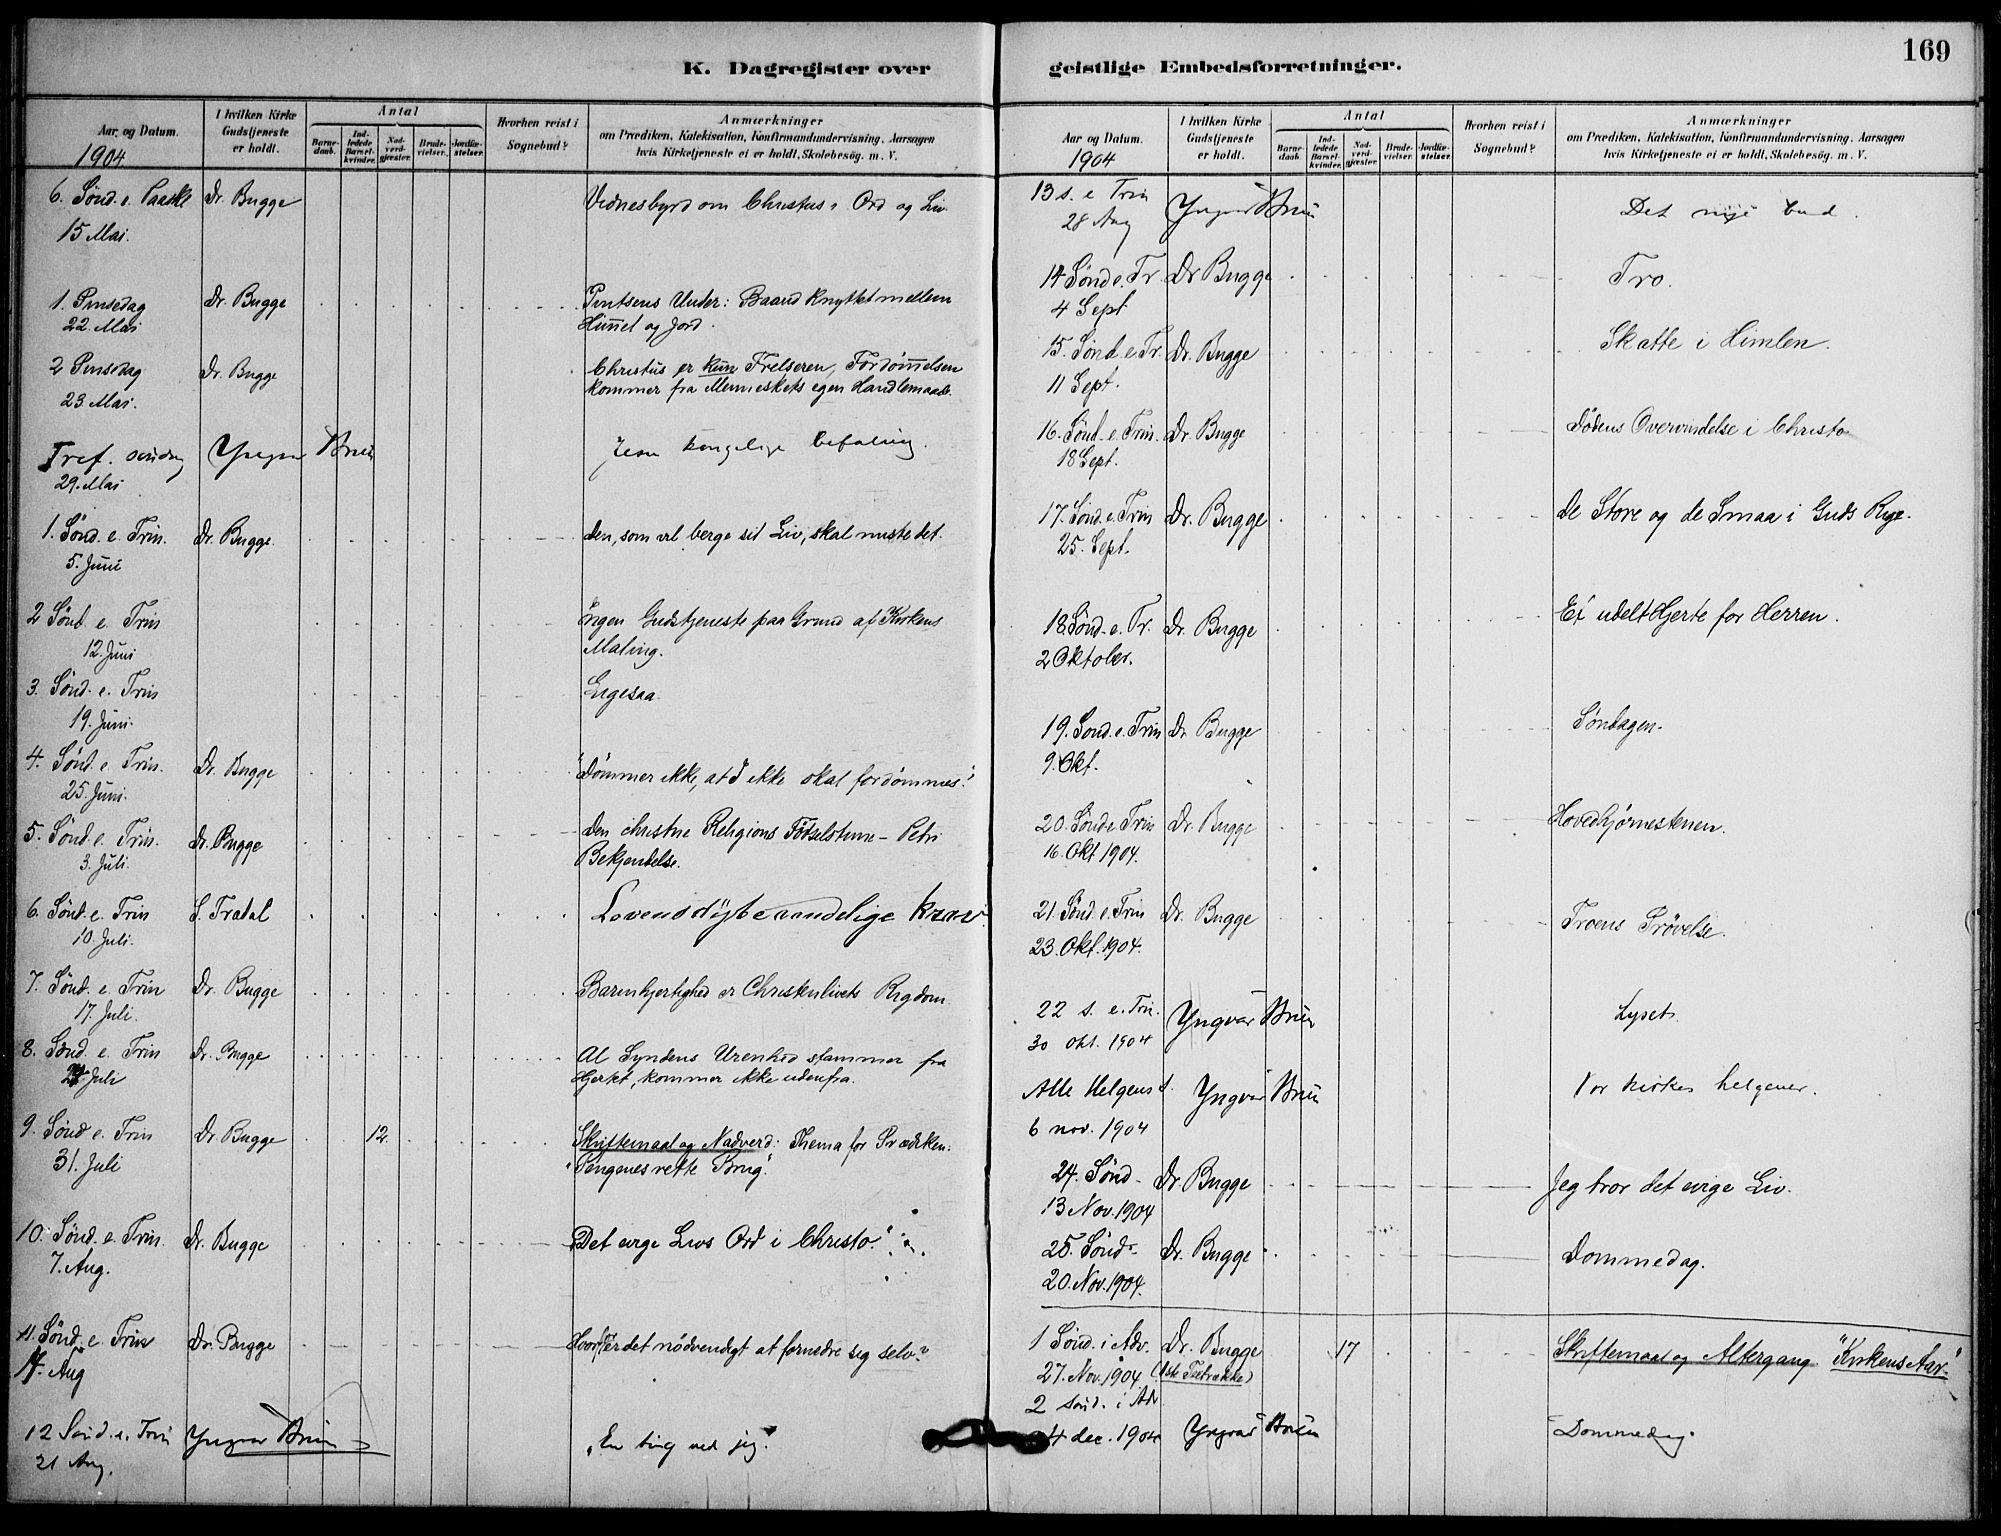 169
K. Dagregister over
geistlige Embedsforretninger.
Aar og Datum.
1904
I hvilken Kirke
Gudstjeneste
er holdt.
Antal
Barne-
daab.
Ind-
ledede
Barsel-
kvinder.
Nad-
verd-
gjester.
Brude-
vielser.
Jordfæ-
stelser.
Hvorhen reist i
Sognebud?
Anmærkninger
om Prædiken, Katekisation, Konfirmandundervisning, Aarsagen
hvis Kirketjeneste ei er holdt, Skolebesøg. m. V.
6. Sønd. e. Paaske Dr. Bugge Vidnesbyrd om Christus i Ord og Liv.
15 Mai.
1. Pinsedag Dr. Bugge Pintsens Under: Baand knyttet mellem
22. Mai Himmel og Jord.
2 Pinsedag Dr. Bugge Christus er kun Frelseren, Fordømmelsen
23. Mai. kommer fra Menneskets egen Handlemaade.
Tref. søndag Yngvar Brun Jesu kongelige befaling.
29. Mai
1. Sønd. e. Trin. Dr. Bugge. Den, som vil berge sit Liv, skal miste det.
5. Juni
2 Sønd. e. Trin Ingen Gudstjeneste paa Grund af Kirkens
12. Juni Maling.
3. Sønd. e. Trin Ligesaa.
19. Juni.
4. Sønd. e. Trin. Dr. Bugge "Dømmer ikke, at I ikke skal fordømmes."
25. Juni.
5. Sønd. e. Trin. Dr. Bugge Den christne Religions Fødselstime - Petri
3. Juli. Bekjendelse.
6. Sønd. e. Trin S. Tradal Lovens dybe aandelige Krav
10. Juli.
7. Sønd. e. Trin Dr. Bugge Barmhjertighed er Christenlivets Rigdom.
17. Juli.
8. Sønd. e. Trin Dr. Bugge Al Syndens Urenhed stammer fra
24. Juli Hjertet, kommer ikke udenfra.
9. Sønd e. Trin Dr. Bugge 12. Skriftemaal og Nadverd: Thema for Prædiken:
31. Juli "Pengenes rette Brug."
10. Sønd. e. Trin. Dr. Bugge "Det evige Livs Ord i Christo."
7. Aug.
11. Sønd. e. Trin Dr. Bugge Hvorfor er det nødvendigt at fornedre sig selv?
14. Aug
12 Sønd. e. Trin Yngvar Brun "En ting ved jeg."
21 Aug.
Aar og Datum.
1904
I hvilken Kirke
Gudstjeneste
er holdt.
Antal
Barne-
daab.
Ind-
ledede
Barsel-
kvinder.
Nad-
verd-
gjester.
Brude-
vielser.
Jordfæ-
stelser.
Hvorhen reist i
Sognebud?
Anmærkninger
om Prædiken, Katekisation, Konfirmandundervisning, Aarsagen
hvis Kirketjeneste ei er holdt, Skolebesøg. m. V.
13 s. e Trin Yngvar Brun Det nye bud.
28 Aug
14 Sønd e. Tr. Dr Bugge Tro.
4 Sept
15. Sønd. e. Tr. Dr. Bugge Skatte i Himlen.
11 Sept.
16. Sønd. e. Trin. Dr. Bugge Dødens Overvindelse i Christo
18 Sept.
17. Sønd. e. Trin Dr. Bugge De Store og de Smaa i Guds Rige.
25. Sept.
18. Sønd. e. Tr. Dr. Bugge Et udelt Hjerte for Herren.
2 Oktober.
19. Sønd. e. Trin Dr. Bugge Søndagen.
9. Okt.
20. Sønd e Trin Dr. Bugge Hovedhjørnestenen.
16. Okt 1904.
21. Sønd. e. Trin Dr. Bugge Troens Prøvelse.
23. Okt. 1904.
22 s. e. Trin. Yngvar Brun Lyset.
30 okt. 1904
Alle Helgens d. Yngvar Brun Vor kirkes helgener.
6 nov. 1904
24. Sønd- Dr. Bugge Jeg tror det evige Liv.
13 Nov. 1904
25. Sønd- Dr. Bugge Dommedag.
20. Nov. 1904.
1 Sønd. i Adv. Dr. Bugge 17 Skriftemaal og Altergang. "Kirkens Aar."
27. Nov. 1904 (1ste Textrække)
2 sønd. i Adv
4 dec. 1904 Yngvar Brun Dommedag.